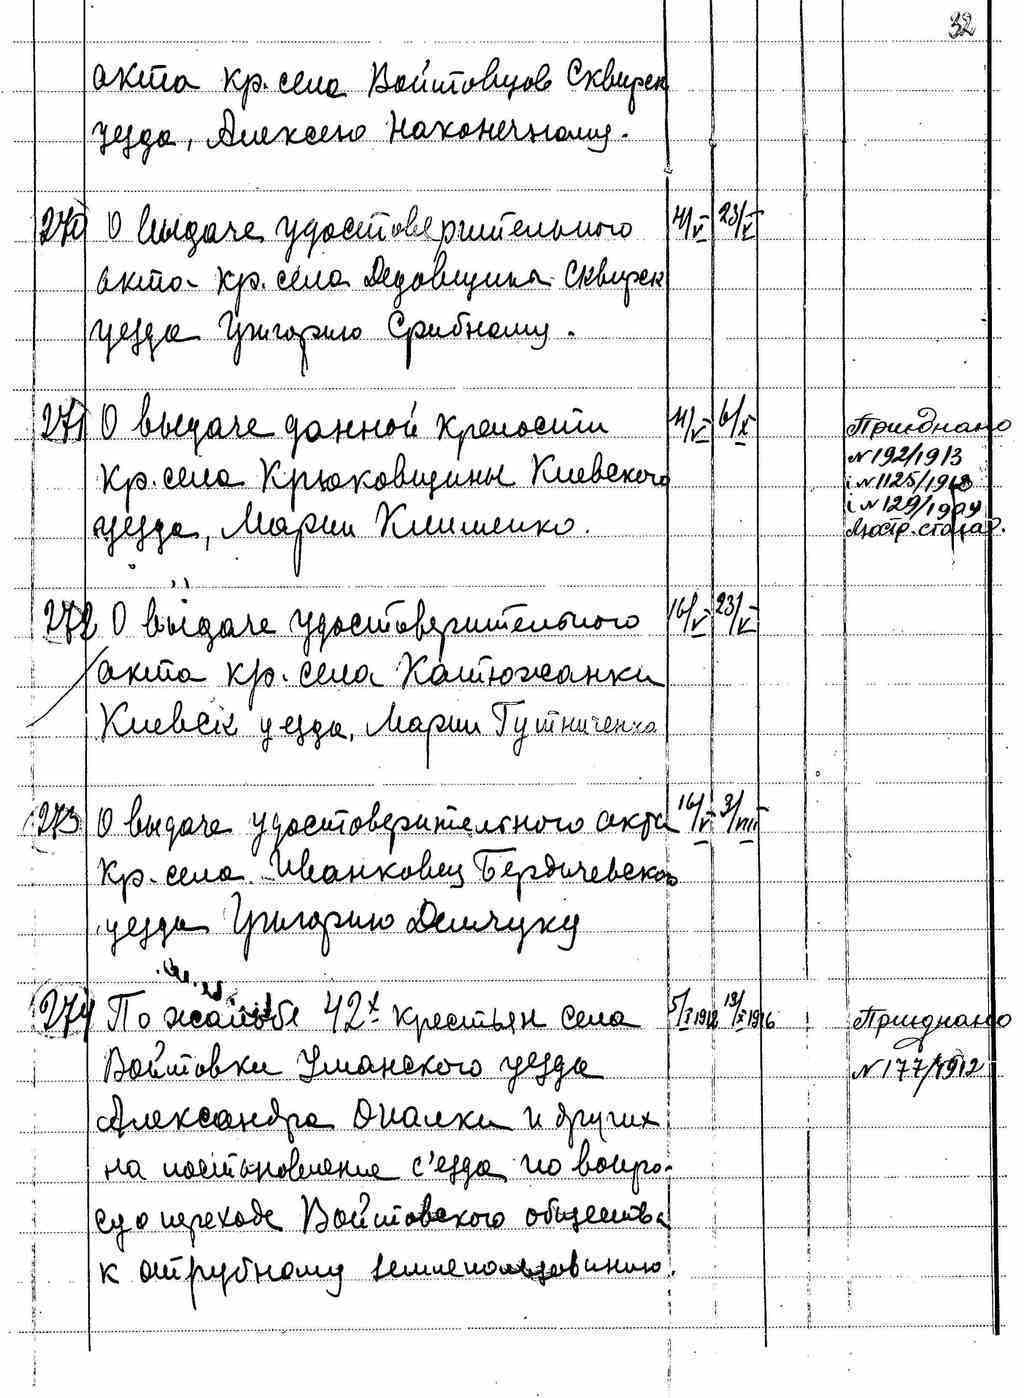 32
акта кр. села Войтовцов Сквирск
уезда, Алексею Наконечному.
270 О выдаче удостоверительного 4/V 23/V
акта кр. села Дедовщины Сквирск
уезда Григорию Срибному.
271 О выдаче данной крепости 4/V 6/X Приєднано
№192/1913
Кр. села Крюковщины Киевского і №1125/1913
і №129/1904
уезда, Марии Клименко. Люстр. стола
272 О выдаче удостоверительного 16/V 23/V
акта кр. села Катюжанки
Киевск уезда, Марии Гутниченко
273 О выдаче удостоверительного акта 16/V 3/VIII
Кр. села Иванковец Бердичевского
уезда Григорию Демчуку
274 По жалобе 42х крестьян села 5/I 1912 1916 Приєднано
Войтовки Уманского уезда №177/1912
Александра Опалки и других
на постановление с'езда по вопро-
су о переходе Войтовского общества
к отрубному землепользованию.